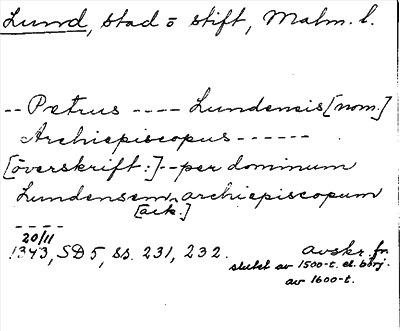 Lund, stad o stift, Malm. l.
-- Petrus ---- Lundensis [nom.]
Archiepiscopus ------
[överskrift:] -- per dominum
Lundensem archiepiscopum
[ack.]
----
20/11
1343, SD 5, ss. 231, 232. avskr. fr.
slutet av 1500-t. el. börj.
av 1600-t.